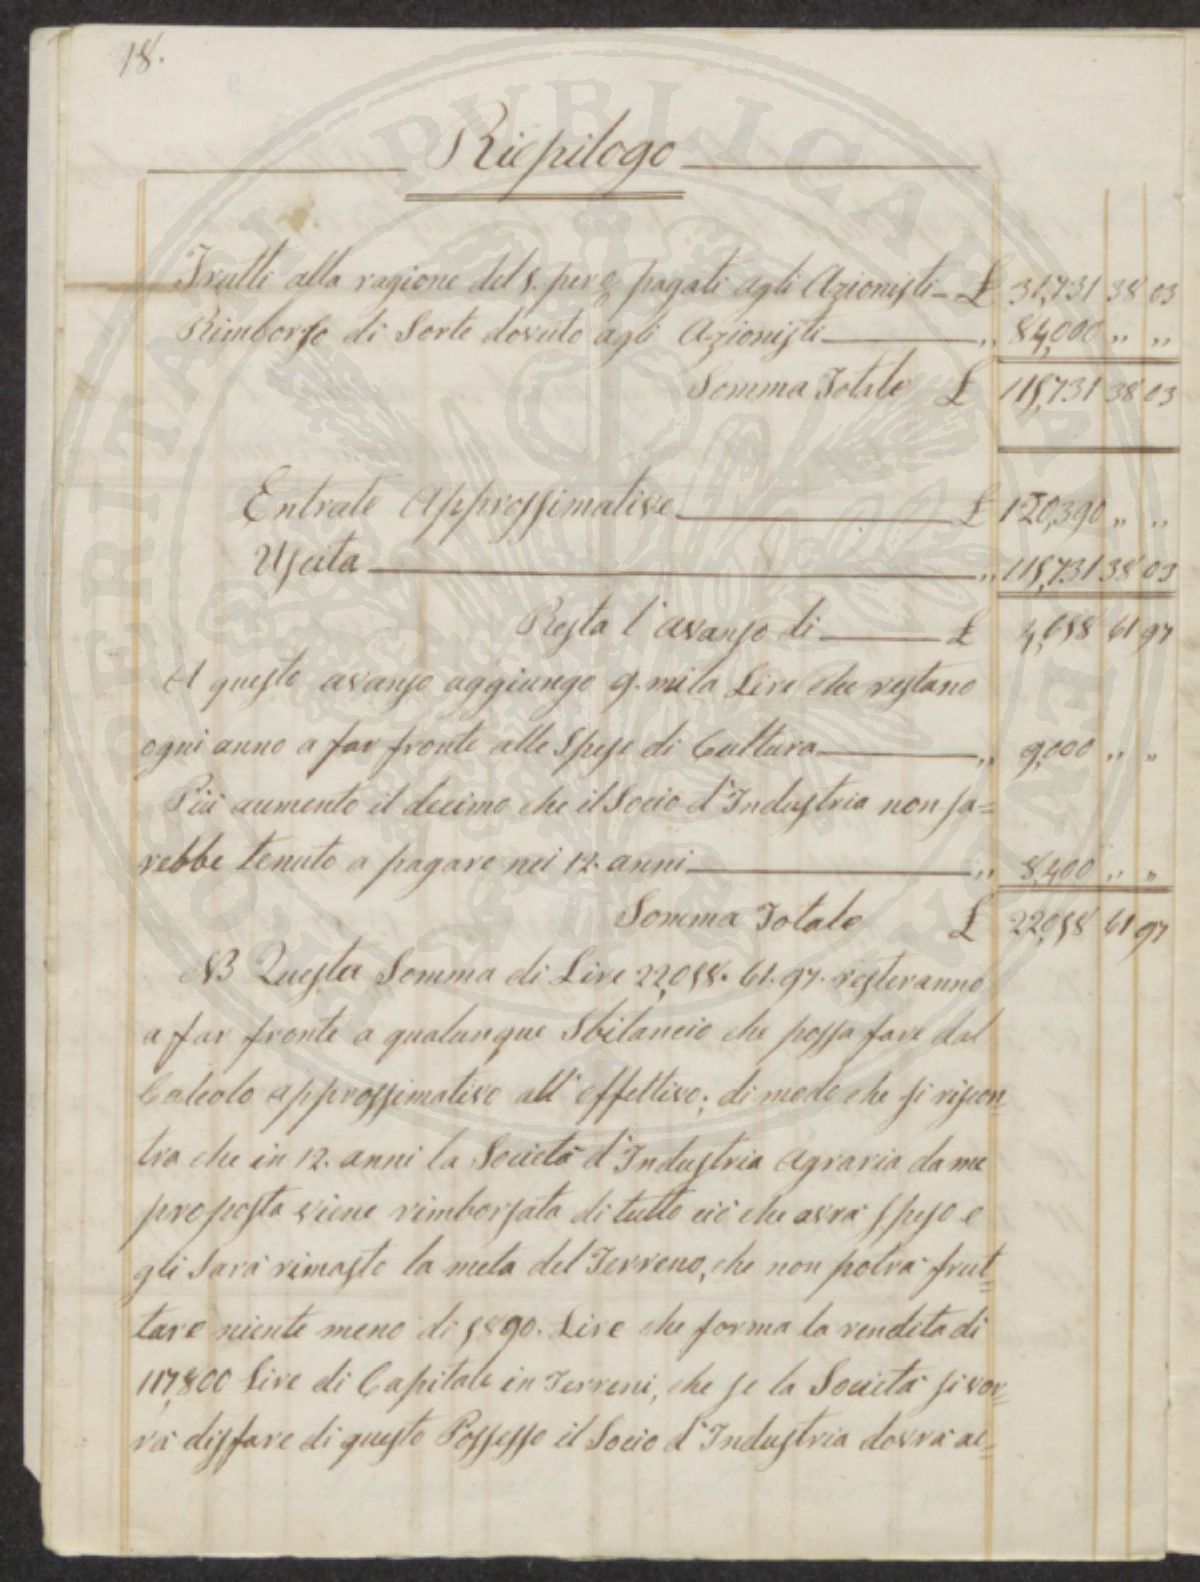 18.
Riepilogo
Frutti alla ragione del 5. per % pagati agli Azionisti £ 31,731 38 03
Rimborso di Sorte dovuto agli Azionisti „ 84,000 „ „
Somma Totale £ 115,731 38 03
Entrate Approssimative £ 120,390 „ „
Uscita „ 115,731 38 03
Resta l'avanso di £ 4,658 61 97
A questo avanso aggiungo 9. mila Lire che restano
ogni anno a far fronte alle Spese di Cultura „ 9,000 „ „
Più aumento il decimo che il Socio d'Industria non sa=
rebbe tenuto a pagare nei 12. anni „ 8,400 „ „
Somma Totale £ 22,058 61 97
NB Questa Somma di Lire 22,058. 61. 97. resteranno
a far fronte a qualunque Sbilancio che possa fare dal
Calcolo approssimativo all'effettivo; di modo che si riscon=
tra che in 12. anni la Società d'Industria Agraria da me
proposta viene rimborsata di tutto ciò che avrà speso e
gli Sarà rimasto la metà del Terreno, che non potrà frut=
tare niente meno di 5890. Lire che forma la rendita di
117,800 Lire di Capitale in Terreni, che se la Società si vor=
rà disfare di questo Possesso il Socio d'Industria dovrà ac=
PROSPERITATI PUBLICAE AUGENDAE